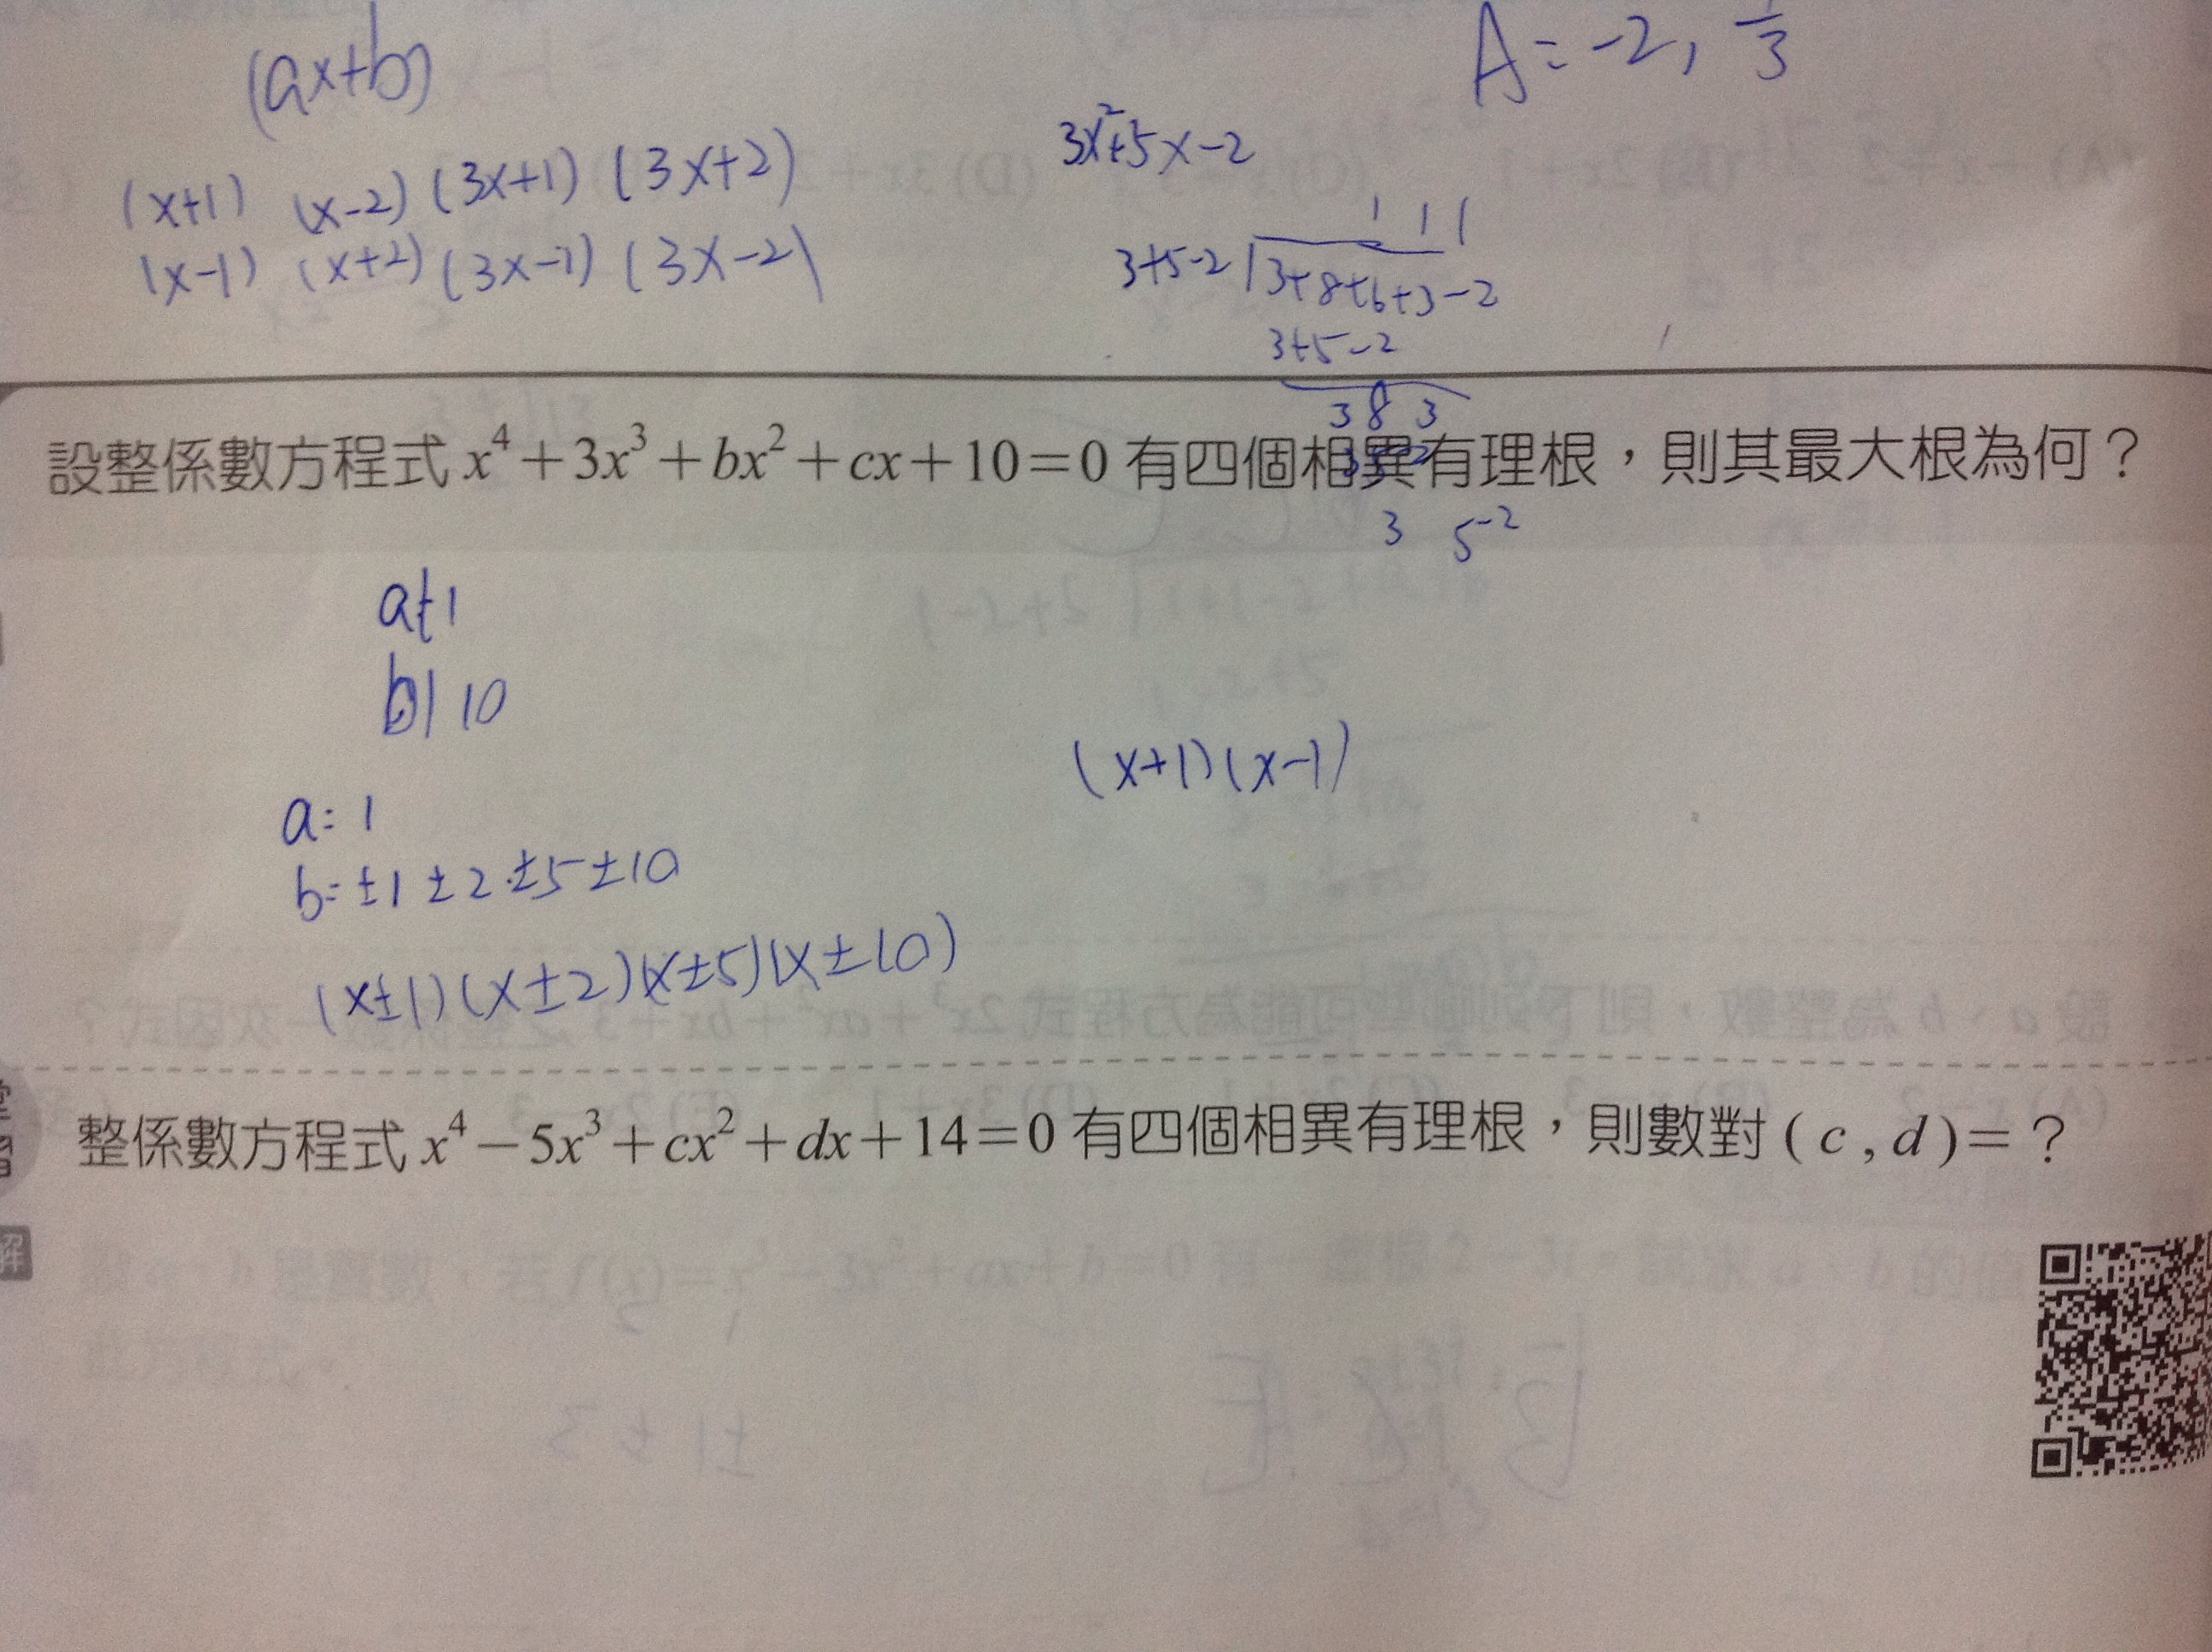 (ax+b)
A=-2,
3
(x+1) (x-2) (3x+1) (3x+2)
(x-1) (x+2) (3x-1) (3x-2)
3x²+5x-2
1 1 1
3+5-2 3+8+6+3-2
3+5-2
3 8 3
設整係數方程式 x⁴+3x³+bx²+cx+10=0 有四個相異有理根，則其最大根為何？
3 5-2
a|1
b|10
(x+1)(x-1)
a=1
b=±1 ±2 ±5 ±10
(x±1)(x±2)(x±5)(x±10)
整係數方程式 x⁴-5x³+cx²+dx+14=0 有四個相異有理根，則數對 (c,d)=？
解